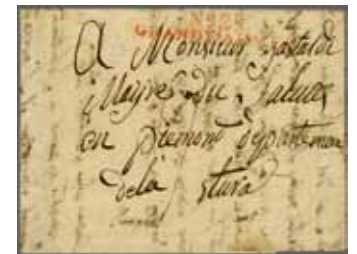 A Monsieur gastaldi
Mayre du Saluces
en piemont departemen
dela stura